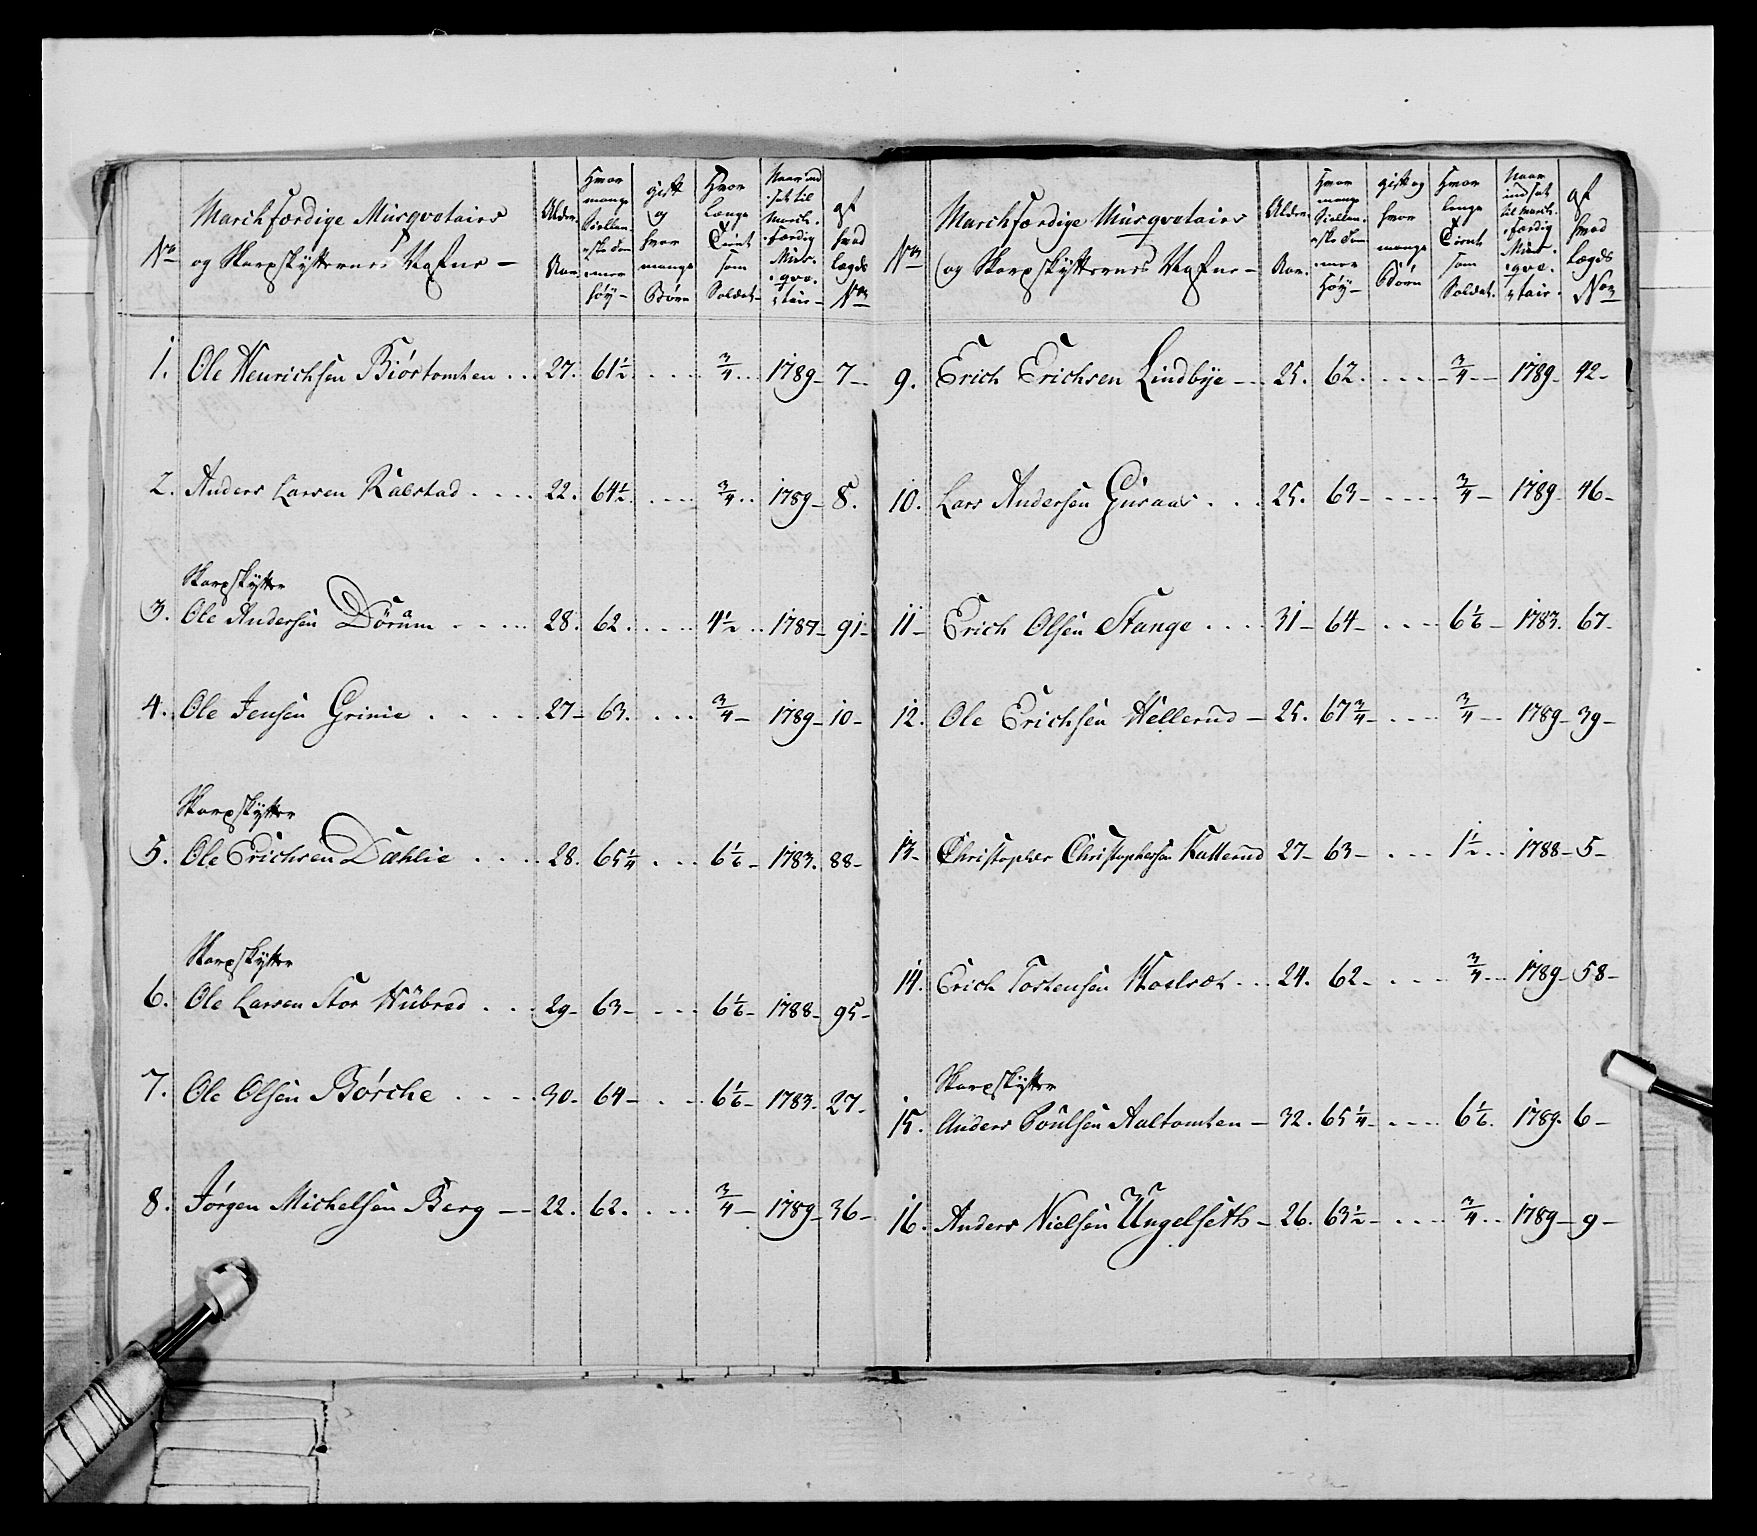 No
Marchfærdige Musqvetairs
og Skarpskÿtternes Nafne –
Alder
Aar.
Hvor mange Siellandske Tommer höÿ –
gift og hvor mange Börn
Hvor Længe Tient som Soldat –
Naar indsat til Marchfærdig Musqvetair –
af hvad Lægds No
1. Ole Henrichsen Biörtomten . . 27. 61½ . . . . ¾ . . 1789 – 7 –
2. Anders Larsen Ralstad . . . . 22. 64½ . . . . ¾ . . 1789 – 8.
Skarpskÿtter
3. Ole Andersen Dörum . . . . 28. 62. . . . . 4½ . . 1787 – 91 –
4. Ole Jensen Grinie . . . . 27 – 63. . . . ¾ – 1789 – 10 –
Skarpskÿtter
5. Ole Erichsen Dæhlie . . . . 28. 65¼ . . . 6⅙ – 1783. 88 –
Skarpskÿtter
6. Ole Larsen Stor Hübred . . . 29 – 63 – . . . 6⅙ – 1788 – 95 –
7. Ole Olsen Börche . . . . 30 – 64 – . . . 6⅙ – 1783. 27 –
8. Jörgen Michelsen Berg – – 22. 62. . . . ¾ – 1789 – 36 –
No
Marchfærdige Musqvetairs
og Skarpskÿtternes Nafne –
Alder
Aar.
Hvor mange Siellandske Tommer höÿ –
gift og hvor mange Börn
Hvor længe Tient som Soldat.
Naar indsat til Marchfærdig Musqvetair.
af hvad Lægds No
9. Erich Erichsen Lindbÿe – – 25. 62. . . . – ¾ – – 1789 – 42 –
10. Lars Andersen Guraas . . . 25. 63 – . . . . ¾ – 1789 – 46 –
11 – Erich Olsen Stange . . . . 31 – 64 – . . . . 6⅙ – 1783. 67 –
12. Ole Erichsen Hellerud – 25. 67¾ – . . . . ¾ – – 1789 – 39 –
13 – Christopher Christophersen Kallerud 27 – 63 – . . . 1½ . . 1788 – 5 –
14. Erich Tostensen . . . 24. 62 – . . . . ¾ – – 1789 – 58 –
Skarpskÿtter
15. Anders Poulsen Aaltomten – 32. 65¼ – . . . . 6⅙. 1789. 6 –
16. Anders Nielsen Ungelseth – 26. 63½ – . . . . ¾ . . 1789 – 9 –